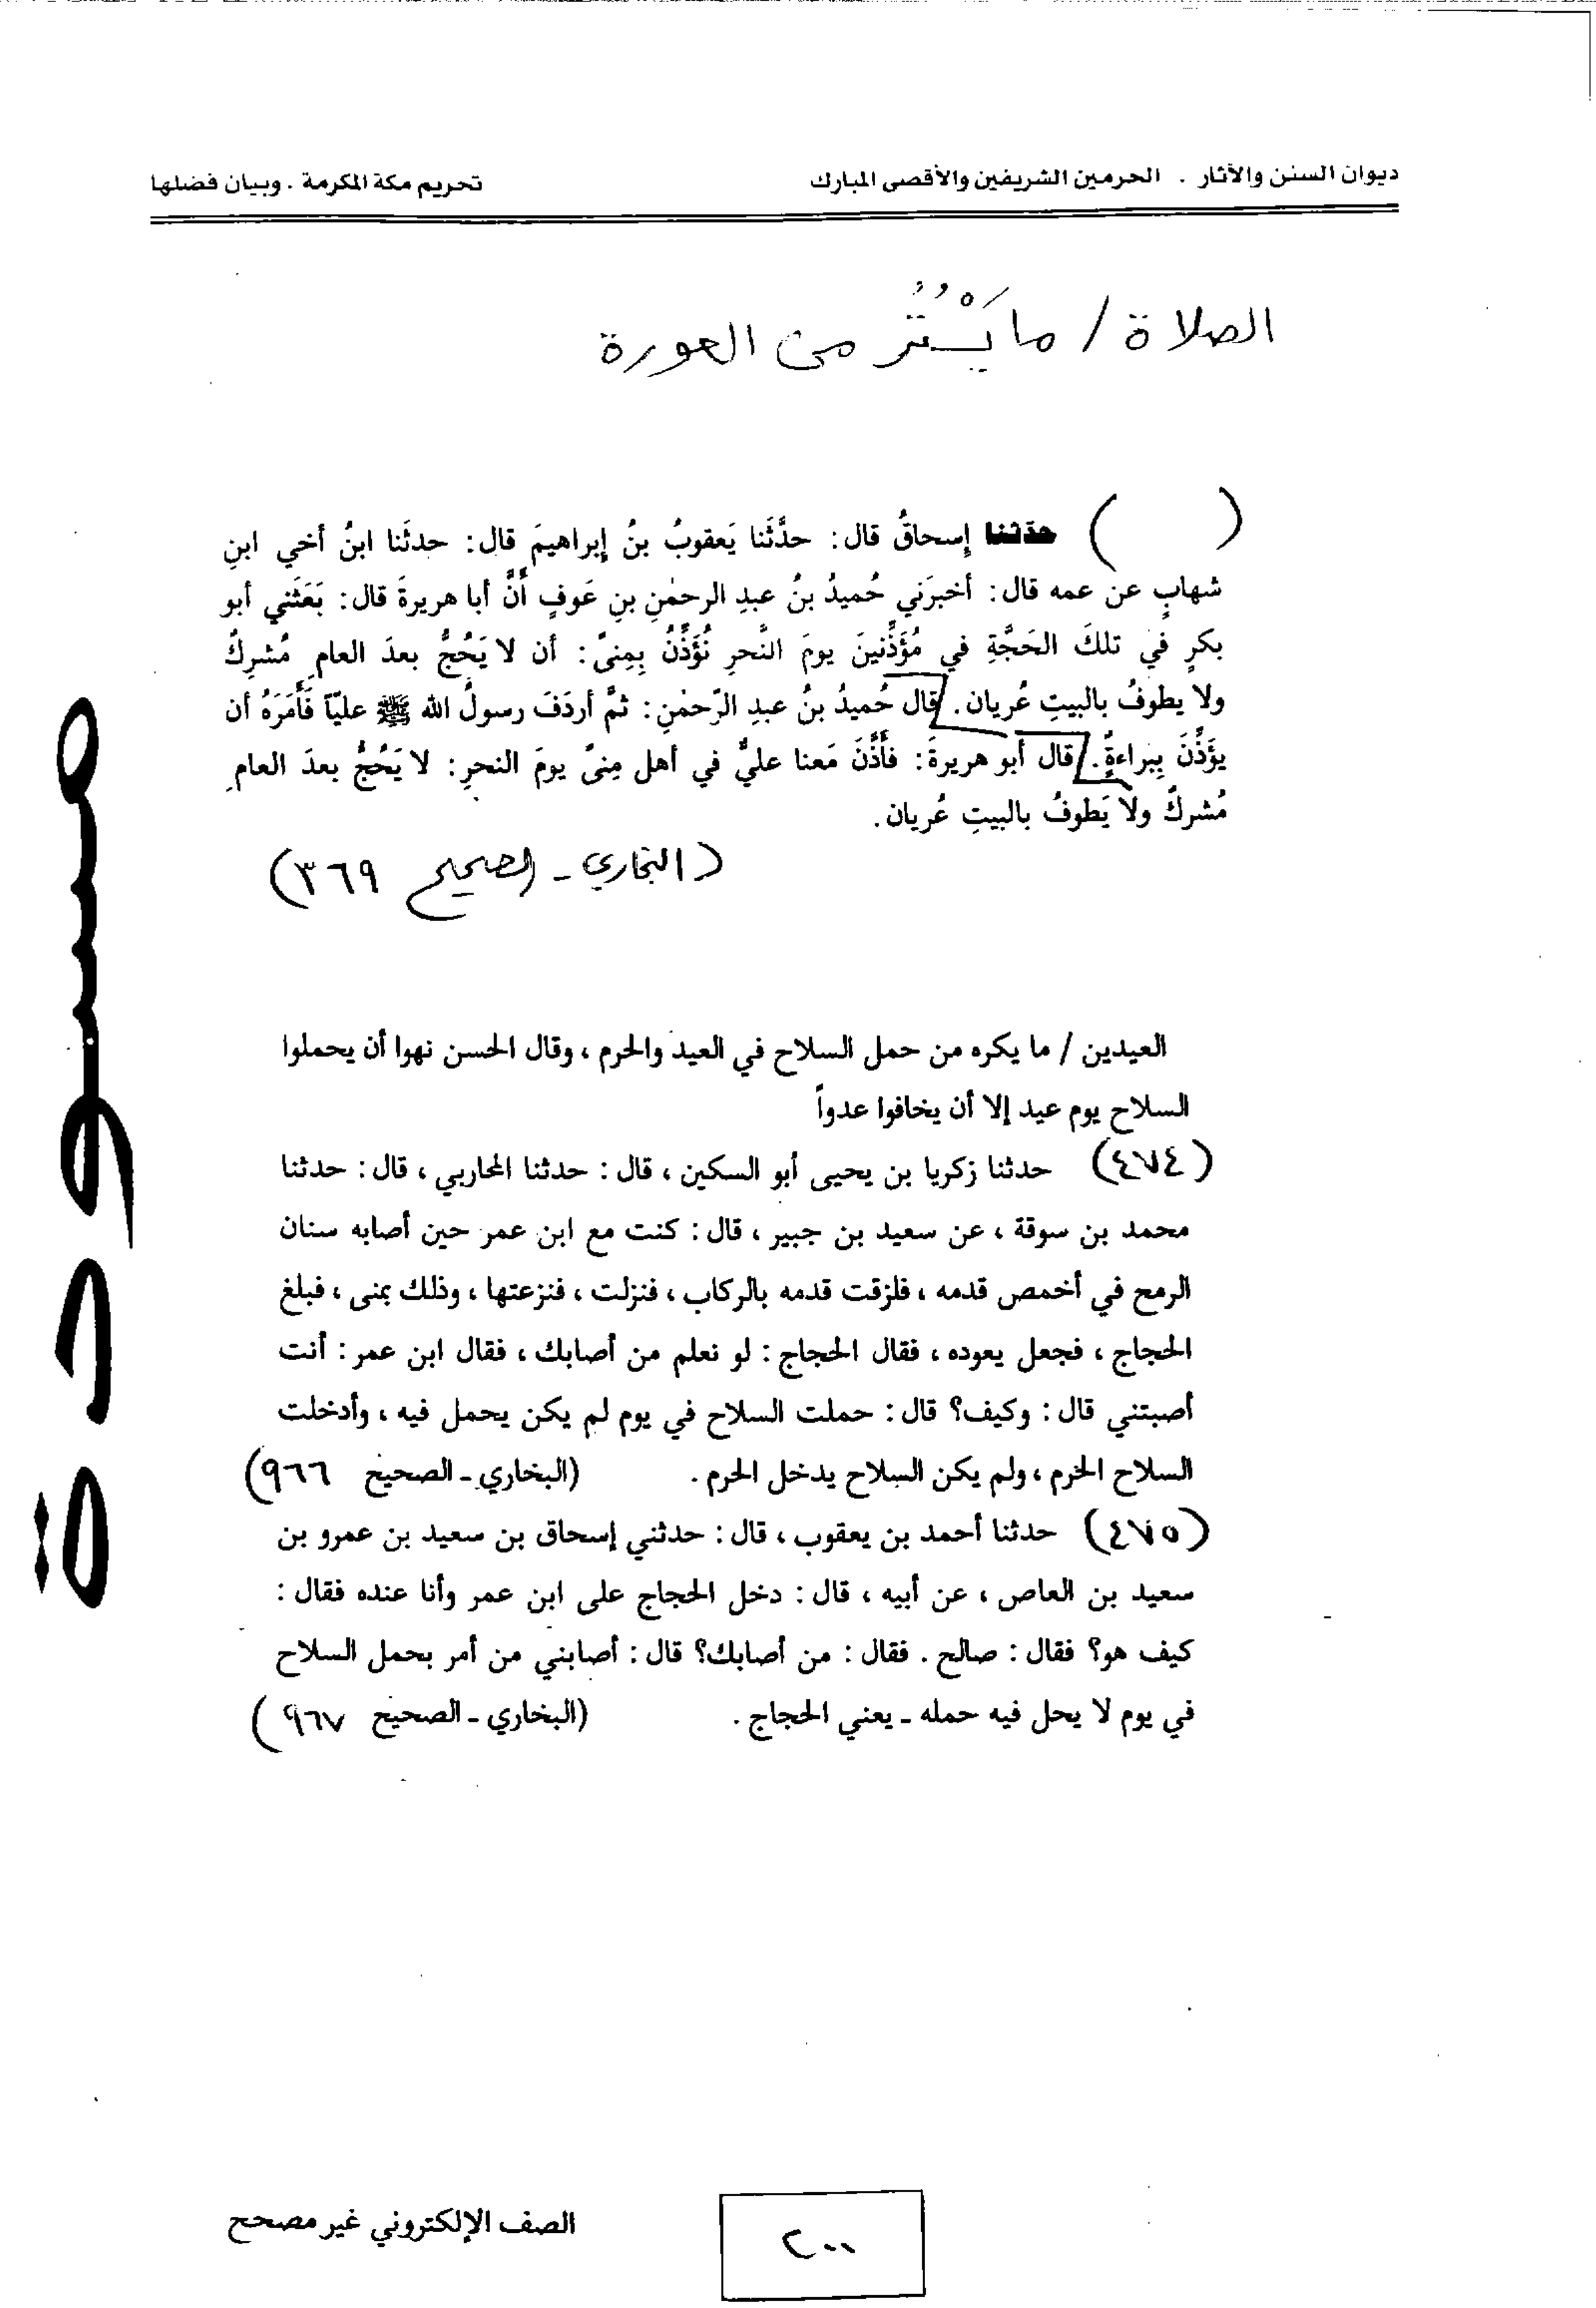 ديوان السنن والآثار . الحرمين الشريفين والأقصى المبارك
تحريم مكة المكرمة . وبيان فضلها
الصلاة / ما يَسْتُر من العورة
( ) حدثنا إسحاقُ قال: حدَّثَنا يَعقوبُ بنُ إبراهيمَ قال: حدثَنا ابنُ أخي ابنِ
شهابٍ عن عمه قال: أخبرَني حُميدُ بنُ عبدِ الرحمٰنِ بنِ عَوفٍ أنَّ أبا هريرةَ قال: بَعَثَني أبو
بكرٍ في تلكَ الحَجَّةِ في مُؤَذِّنينَ يومَ النَّحرِ نُؤَذِّنُ بِمِنىً: أن لا يَحُجُّ بعدَ العامِ مُشرِكٌ
ولا يطوفُ بالبيتِ عُريان. قال حُميدُ بنُ عبدِ الرّحمٰنِ: ثمَّ أردَفَ رسولُ الله ﷺ عليّاً فَأَمَرَهُ أن
يؤَذِّنَ بِبراءةٍ. قال أبو هريرةَ: فأَذَّنَ مَعنا عليٌّ في أهل مِنىً يومَ النحرِ: لا يَحُجُّ بعدَ العامِ
مُشركٌ ولا يَطوفُ بالبيتِ عُريان.
(البخاري - الصحيح ٣٦٩)
العيدين / ما يكره من حمل السلاح في العيد والحرم ، وقال الحسن نهوا أن يحملوا
السلاح يوم عيد إلا أن يخافوا عدواً
(٤٧٤) حدثنا زكريا بن يحيى أبو السكين ، قال : حدثنا المحاربي ، قال : حدثنا
محمد بن سوقة ، عن سعيد بن جبير ، قال : كنت مع ابن عمر حين أصابه سنان
الرمح في أخمص قدمه ، فلزقت قدمه بالركاب ، فنزلت ، فنزعتها ، وذلك بمنى ، فبلغ
الحجاج ، فجعل يعوده ، فقال الحجاج : لو نعلم من أصابك ، فقال ابن عمر : أنت
أصبتني قال : وكيف؟ قال : حملت السلاح في يوم لم يكن يحمل فيه ، وأدخلت
السلاح الحرم ، ولم يكن السلاح يدخل الحرم . (البخاري - الصحيح ٩٦٦)
(٤٧٥) حدثنا أحمد بن يعقوب ، قال : حدثني إسحاق بن سعيد بن عمرو بن
سعيد بن العاص ، عن أبيه ، قال : دخل الحجاج على ابن عمر وأنا عنده فقال :
كيف هو؟ فقال : صالح . فقال : من أصابك؟ قال : أصابني من أمر بحمل السلاح
في يوم لا يحل فيه حمله - يعني الحجاج . (البخاري - الصحيح ٩٦٧)
مسودة
٢٠٠
الصف الإلكتروني غير مصحح